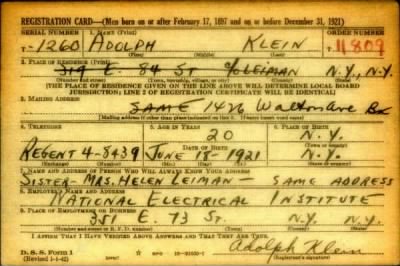 REGISTRATION CARD—(Men born on or after February 17, 1897 and on or before December 31, 1921)
SERIAL NUMBER 1. NAME (Print) ORDER NUMBER
T-1260 ADOLPH KLEIN 11809
(First) (Middle) (Last)
2. PLACE OF RESIDENCE (Print)
319 E. 84 ST. %LEIMAN N.Y., N.Y.
(Number and street) (Town, township, village, or city) (County) (State)
[THE PLACE OF RESIDENCE GIVEN ON THE LINE ABOVE WILL DETERMINE LOCAL BOARD
JURISDICTION; LINE 2 OF REGISTRATION CERTIFICATE WILL BE IDENTICAL]
3. MAILING ADDRESS
SAME 1426 Walton Ave Bx
[Mailing address if other than place indicated on line 2. If same insert word same]
4. TELEPHONE 5. AGE IN YEARS 6. PLACE OF BIRTH
20 N.Y.
DATE OF BIRTH (Town or county)
REGENT 4-8439 JUNE 18-1921 N.Y.
(Exchange) (Number) (Mo.) (Day) (Yr.) (State or country)
7. NAME AND ADDRESS OF PERSON WHO WILL ALWAYS KNOW YOUR ADDRESS
SISTER-MRS. HELEN LEIMAN - SAME ADDRESS
8. EMPLOYER'S NAME AND ADDRESS
NATIONAL ELECTRICAL INSTITUTE
9. PLACE OF EMPLOYMENT OR BUSINESS
E. 73 ST. N.Y. N.Y.
(Number and street or R. F. D. number) (Town) (County) (State)
I AFFIRM THAT I HAVE VERIFIED ABOVE ANSWERS AND THAT THEY ARE TRUE.
D. S. S. Form 1 Adolph Klein
(Revised 1-1-42) GPO